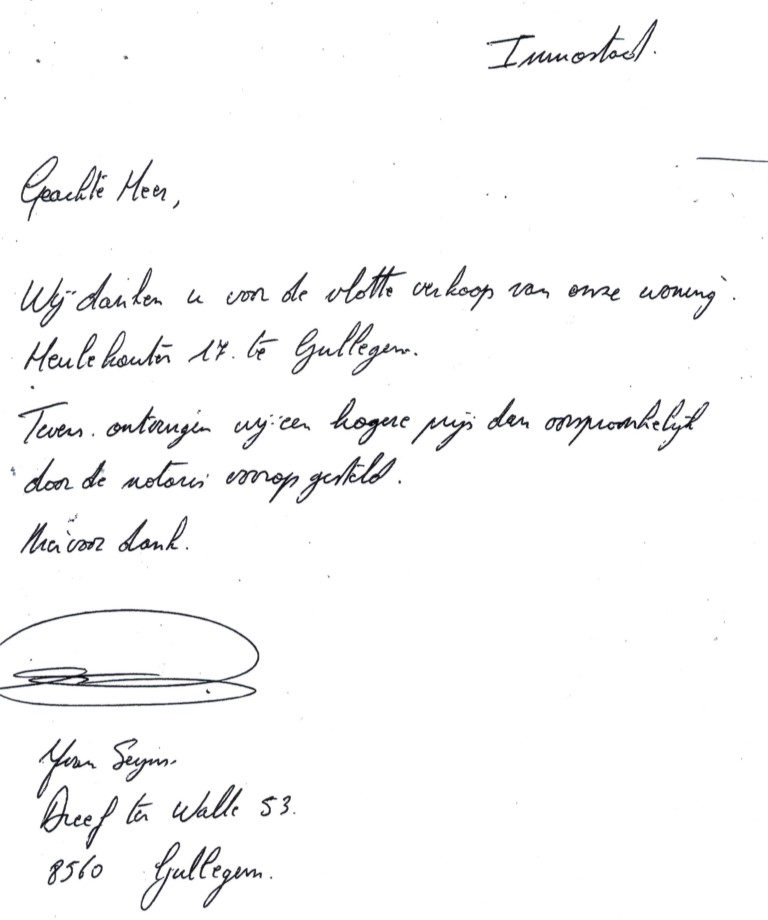 Immostad.
Geachte Heer,
Wij danken u voor de vlotte verkoop van onze woning.
Heulehouten 17. te Gullegem.
Tevens. ontvingen wij een hogere prijs dan oorspronkelijk
door de notaris voorop gesteld.
Hiervoor dank.
Yvan Seyns.
Dreef ter Walle 53.
8560 Gullegem.